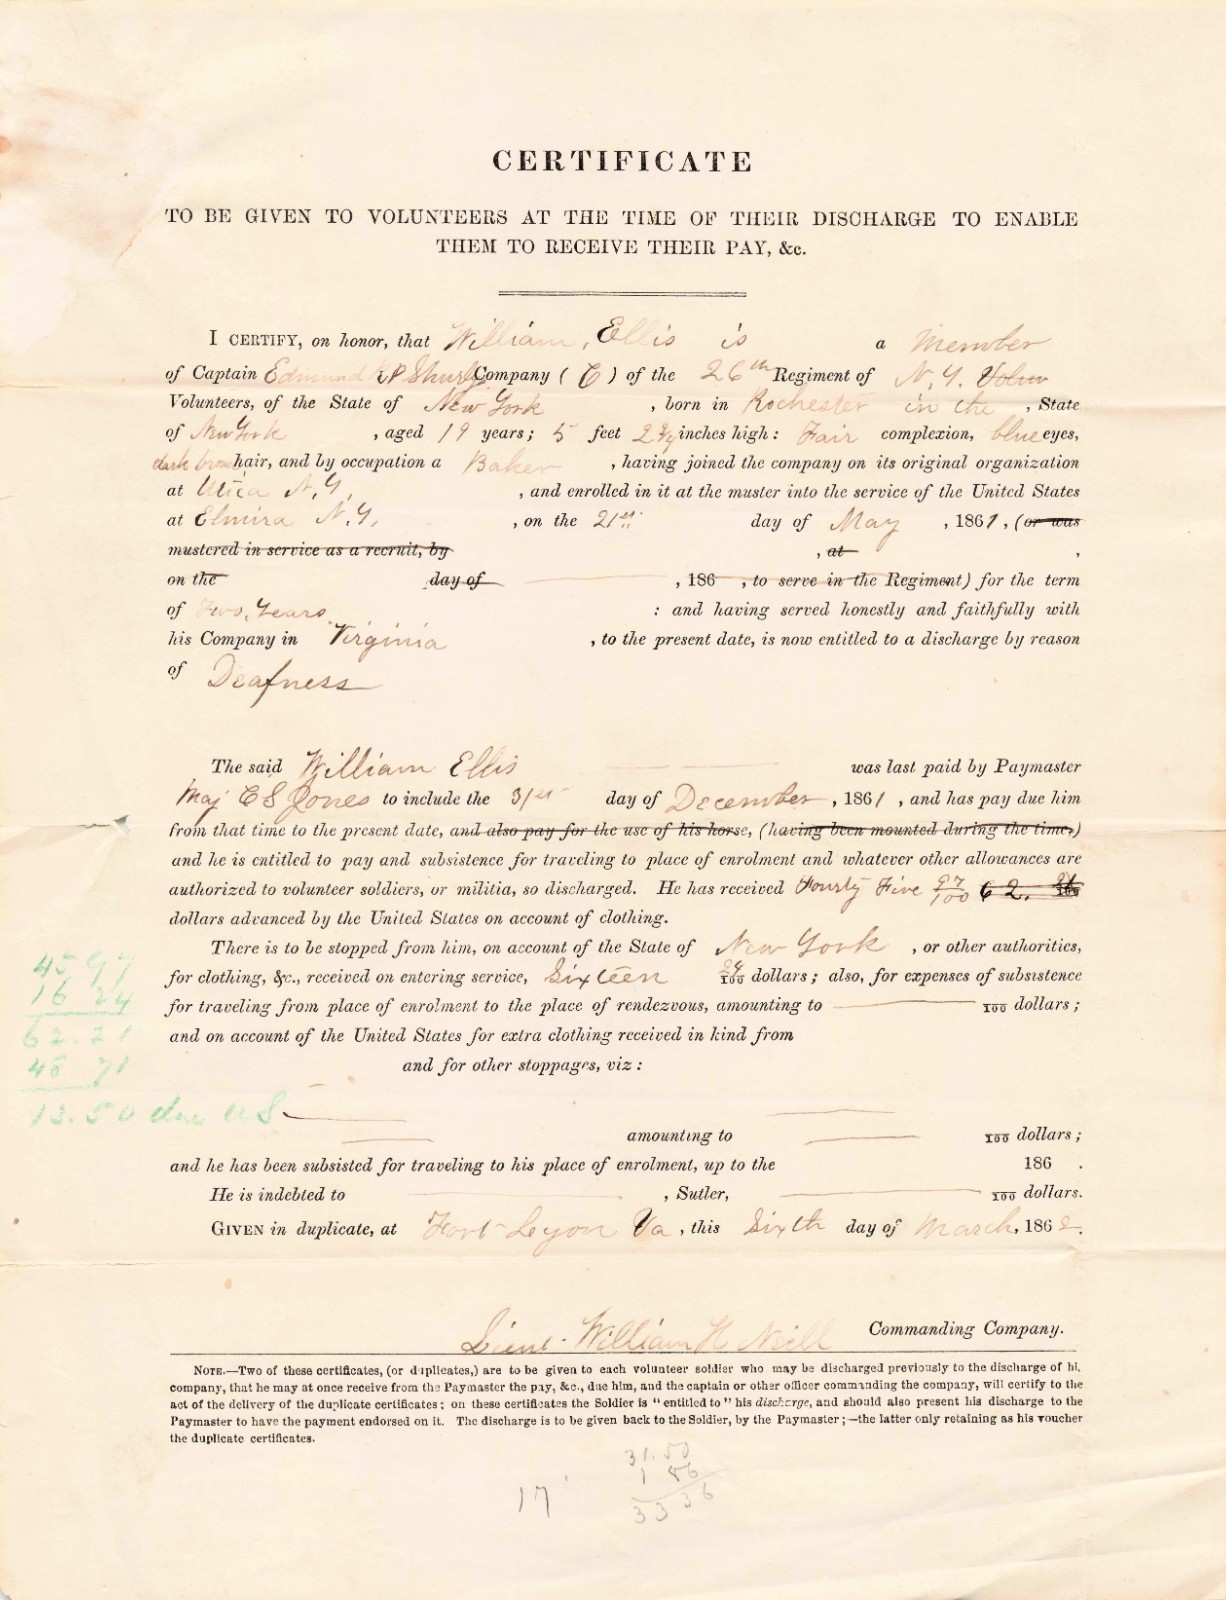 CERTIFICATE
TO BE GIVEN TO VOLUNTEERS AT THE TIME OF THEIR DISCHARGE TO ENABLE
THEM TO RECEIVE THEIR PAY, &c.
I CERTIFY, on honor, that William, Ellis is a Member
of Captain Edmund R P Shurly Company (C) of the 26th Regiment of N.Y. Volun
Volunteers, of the State of New York, born in Rochester in the, State
of New York, aged 19 years; 5 feet 2¾ inches high: Fair complexion, blue eyes,
dark brown hair, and by occupation a Baker, having joined the company on its original organization
at Utica N.Y., and enrolled in it at the muster into the service of the United States
at Elmira N.Y., on the 21st day of May, 1861, (or was
mustered in service as a recruit, by , at ,
on the day of , 186 , to serve in the Regiment) for the term
of Two, Years : and having served honestly and faithfully with
his Company in Virginia, to the present date, is now entitled to a discharge by reason
of Deafness
The said William Ellis was last paid by Paymaster
Maj C S Jones to include the 31st day of December, 1861, and has pay due him
from that time to the present date, and also pay for the use of his horse, (having been mounted during the time,)
and he is entitled to pay and subsistence for traveling to place of enrolment and whatever other allowances are
authorized to volunteer soldiers, or militia, so discharged. He has received Fourty Five 97/100 62. 21/100
dollars advanced by the United States on account of clothing.
There is to be stopped from him, on account of the State of New York, or other authorities,
for clothing, &c., received on entering service, Sixteen 24/100 dollars; also, for expenses of subsistence
for traveling from place of enrolment to the place of rendezvous, amounting to 100 dollars;
and on account of the United States for extra clothing received in kind from
and for other stoppages, viz:
45 97
16 24
62.21
48 71
13.50 due US
amounting to 100 dollars;
and he has been subsisted for traveling to his place of enrolment, up to the 186 .
He is indebted to , Sutler, 100 dollars.
GIVEN in duplicate, at Fort Lyon Va, this Sixth day of March, 1862.
Lieut. William H Neill Commanding Company.
NOTE.—Two of these certificates, (or duplicates,) are to be given to each volunteer soldier who may be discharged previously to the discharge of hi,
company, that he may at once receive from the Paymaster the pay, &c., due him, and the captain or other officer commanding the company, will certify to the
act of the delivery of the duplicate certificates; on these certificates the Soldier is "entitled to" his discharge, and should also present his discharge to the
Paymaster to have the payment endorsed on it. The discharge is to be given back to the Soldier, by the Paymaster;—the latter only retaining as his voucher
the duplicate certificates.
31.50
1 86
17 33 36